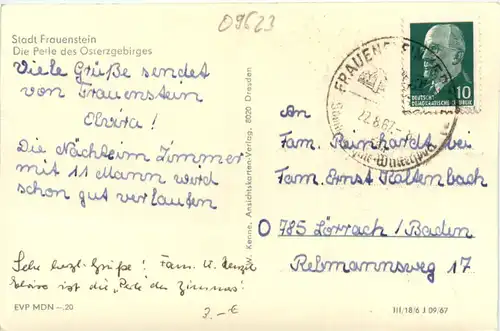 09623
Stadt Frauenstein
Die Perle des Osterzgebirges
Viele Grüße sendet
von Frauenstein
Elvira!
Die Nächte im Zimmer
mit 11 Mann wird
schon gut verlaufen
Sehr herzl. Grüße! Fam. W.
ist die „Perle des Zimmers"
EVP MDN -.20
3.-€
W. Kenne, Ansichtskarten-Verlag, 8020 Dresden
FRAUENSTEIN
22.8.67
DEUTSCHE
DEMOKRATISCHE REPUBLIK
10
An
Fam. Reinhardt bei
Fam. Ernst Kaltenbach
785 Lörrach/Baden
Rebmannsweg 17
III/18/6 J 09/67